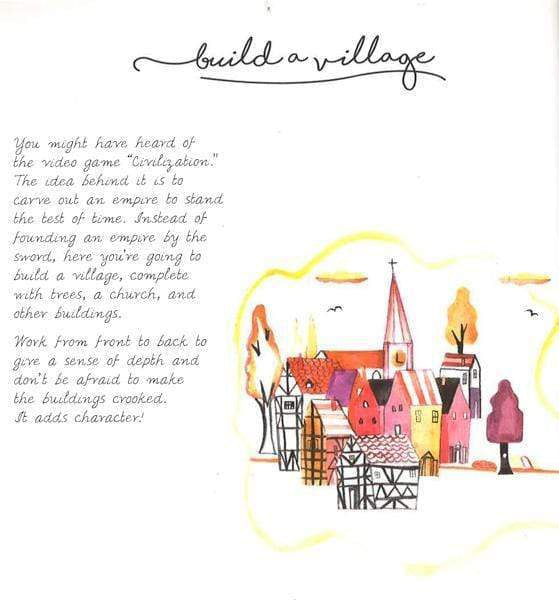 build a village
You might have heard of
the video game "Civilization."
The idea behind it is to
carve out an empire to stand
the test of time. Instead of
founding an empire by the
sword, here you're going to
build a village, complete
with trees, a church, and
other buildings.
Work from front to back to
give a sense of depth and
don't be afraid to make
the buildings crooked.
It adds character!